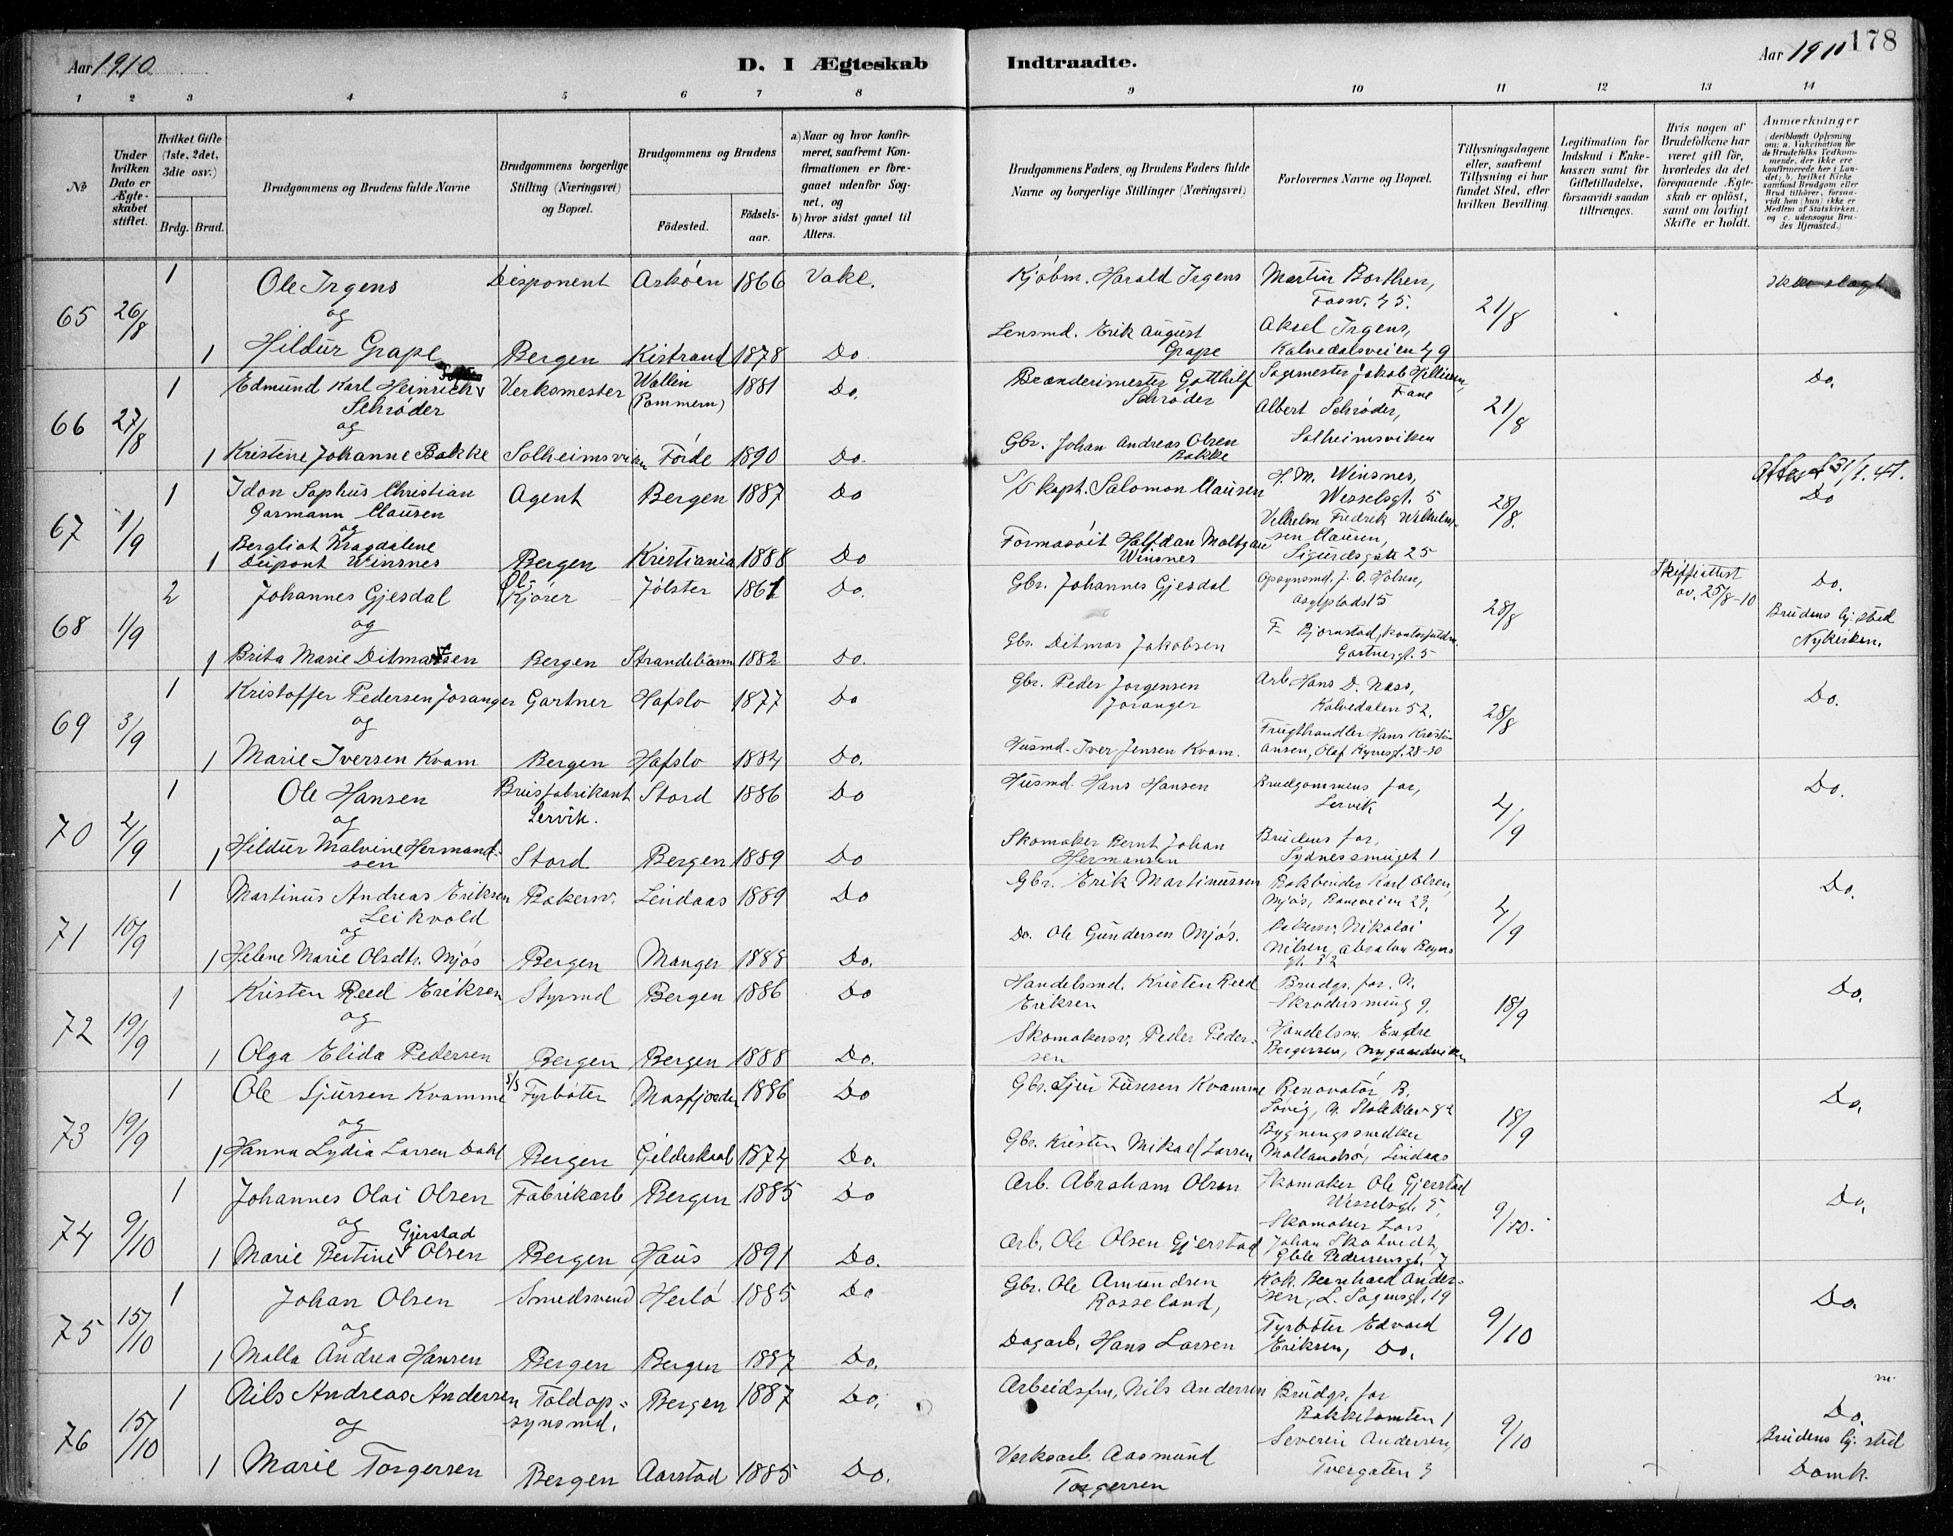 Aar 1910
D. I Ægteskab Indtraadte.
Aar 1910
178
1 2 3 4 5 6 7 8 9 10 11 12 13 14
No
Under hvilken Dato er Ægteskabet stiftet.
Hvilket Gifte (1ste, 2det, 3die osv.)
Brdg. Brud.
Brudgommens og Brudens fulde Navne
Brudgommens borgerlige Stilling (Næringsvei) og Bopæl.
Brudgommens og Brudens
Födested.
Födsels-aar.
a) Naar og hvor konfirmeret, saafremt Konfirmationen er foregaaet udenfor Sognet, og
b) hvor sidst gaaet til Alters.
Brudgommens Faders, og Brudens Faders fulde Navne og borgerlige Stillinger (Næringsvei)
Forlovernes Navne og Bopæl.
Tillysningsdagene eller, saafremt Tillysning ei har fundet Sted, efter hvilken Bevilling.
Legitimation for Indskud i Enkekassen samt for Giftetilladelse, forsaavidt saadan tiltrænges.
Hvis nogen af Brudefolkene har været gift för, hvorledes da det foregaaende Ægteskab er oplöst, samt om lovligt Skifte er holdt.
Anmærkninger (deriblandt Oplysning om: a. Vakcination for de Brudefolks Vedkommende, der ikke ere konfirmerede her i Landet; b. hvilket Kirkesamfund Brudgom eller Brud tilhörer, forsaavidt hen (hun) ikke er Medlem af Statskirken, og c. udensogns Brudes Hjemsted.)
65 26/8
1 Ole Irgens Disponent Askøen 1866 Vakc. Kjøbm. Harald Irgens Martin Borthen, 21/8
og
1 Hildur Grape Bergen Kistrand 1878 Do. Lensmd. Erik August Grape Aksel Irgens, Kalvedalsveien 49
66 27/8
1 Edmund Karl Heinrich Schrøder Verksmester Wollin (Pommern) 1881 Do. Brænderimester Gotthilf Schrøder Fane 21/8 Do.
og
1 Kristine Johanne Bakke Solheimsviken Førde 1890 Do. Gbr. Johan Andreas Olsen Bakke Albert Schrøder, Solheimsviken
67 1/9
1 Idon Sophus Christian Garmann Clausen Agent Bergen 1887 Do S/S kapt. Salomon Clausen H. M. Winsnes, Wesselsgt. 5 28/8. 31/1. 41. Do
og
1 Bergliot Magdalene Dupont Winsnes Bergen Kristiania 1888 Do Halfdan Moltzau Winsnes Vilhelm Fredrik Wilhelmsen Clausen, Sigurdsgate 25
68 1/9
2 Johannes Gjesdal Øl-Kjører Jølster 1861 Do. Gbr. Johannes Gjesdal Opsynsmd. J. O. Holsen, Asylplads 15 28/8 Skifteattest av. 25/8-10 Do.
og
1 Brita Marie Ditmarsen Bergen Strandebarm 1882 Do. Gbr. Ditmar Jakobsen F. Bjørnstad, Gartnergt. 5 Brudens Hj: sted Nykirken.
69 3/9
1 Kristoffer Pedersen Joranger Gartner Hafslo 1877 Do Gbr. Peder Jørgensen Joranger Arb. Hans D. Næss, Kalvedalen 52. 28/8 Do.
og
1 Marie Iversen Kvam Bergen Hafslo 1884 Do. Husmd. Iver Jensen Kvam. Frugthandler Hans Kristiansen, Olaf Kyrresgt. 28-30
70 4/9
1 Ole Hansen Brusfabrikant Lervik. Stord 1886 Do Husmd. Hans Hansen Brudgommens far, Lervik 4/9 Do.
og
1 Hildur Malvine Hermandsen Stord Bergen 1889 Do Skomaker Bernt Johan Hermansen Brudens far, Sydnessmuget 1
71 10/9
1 Martinus Andreas Eriksen Leikvold Bakersv. Lindaas 1889 Do Gbr. Erik Martinussen Bokbinder Karl Olsen, Mjøs, 4/9 Do.
og
1 Helene Marie Olsdtr. Mjøs Bergen Manger 1888 Do. Do. Ole Gundersen Mjøs. Bakersv. Nikolai Nilsen, Absalon Beyers gt. 32
72 19/9
1 Kristen Reed Eriksen Styrmd Bergen 1886 Do Handelsmd. Kristen Reed Eriksen Brudgs. far. N. Skrødersmug 9. 18/9 Do.
og
1 Olga Elida Pedersen Bergen Bergen 1888 Do. Skomakersv. Peder Pedersen Handelsm. Endre Bergersen, Nygaardsviken
73 19/9
1 Ole Sjursen Kvamme S/S Fyrbøter Masfjorden 1886 Do Gbr. Sjur Kvamme Renovatør B. Søvig, 18/9 Do.
og
1 Hanna Lydia Larsen Dahl Bergen Gildeskaal 1874 Do. Gbr. Kristen Mikael Larsen Bygningssnedker Lindaas
74 9/10
1 Johannes Olai Olsen Fabrikarb Bergen 1885 Do Arb. Abraham Olsen Skomaker Ole Gjerstad Wesselsgt. 5, 9/10. Do.
og
1 Marie Bertine Gjerstad Olsen Bergen Haus 1891 Do. Arb. Ole Olsen Gjerstad Skomaker Lars Johan Skotvedt, Gble Pedersensgt. 7
75 15/10
1 Johan Olsen Smedsvend Herlø 1885 Do Gbr. Ole Amundsen Rosseland, Kok. Bernhard Andersen, L. Sagensgt. 19 9/10 Do.
og
1 Malla Andrea Hansen Bergen Bergen 1887 Do. Dagarb. Hans Larsen Fyrbøter Edvard Eriksen, Do.
76 15/10
1 Nils Andreas Andersen Toldopsynsmd. Bergen 1887 Do. Nils Andersen Brudgs. far Bakketomten 1 9/10 Do.
og
1 Marie Torgersen Bergen Aarstad 1885 Do. Verksarb. Aasmund Torgersen Severin Andersen, Tvergaten 3 Brudens Hj: sted Domk.